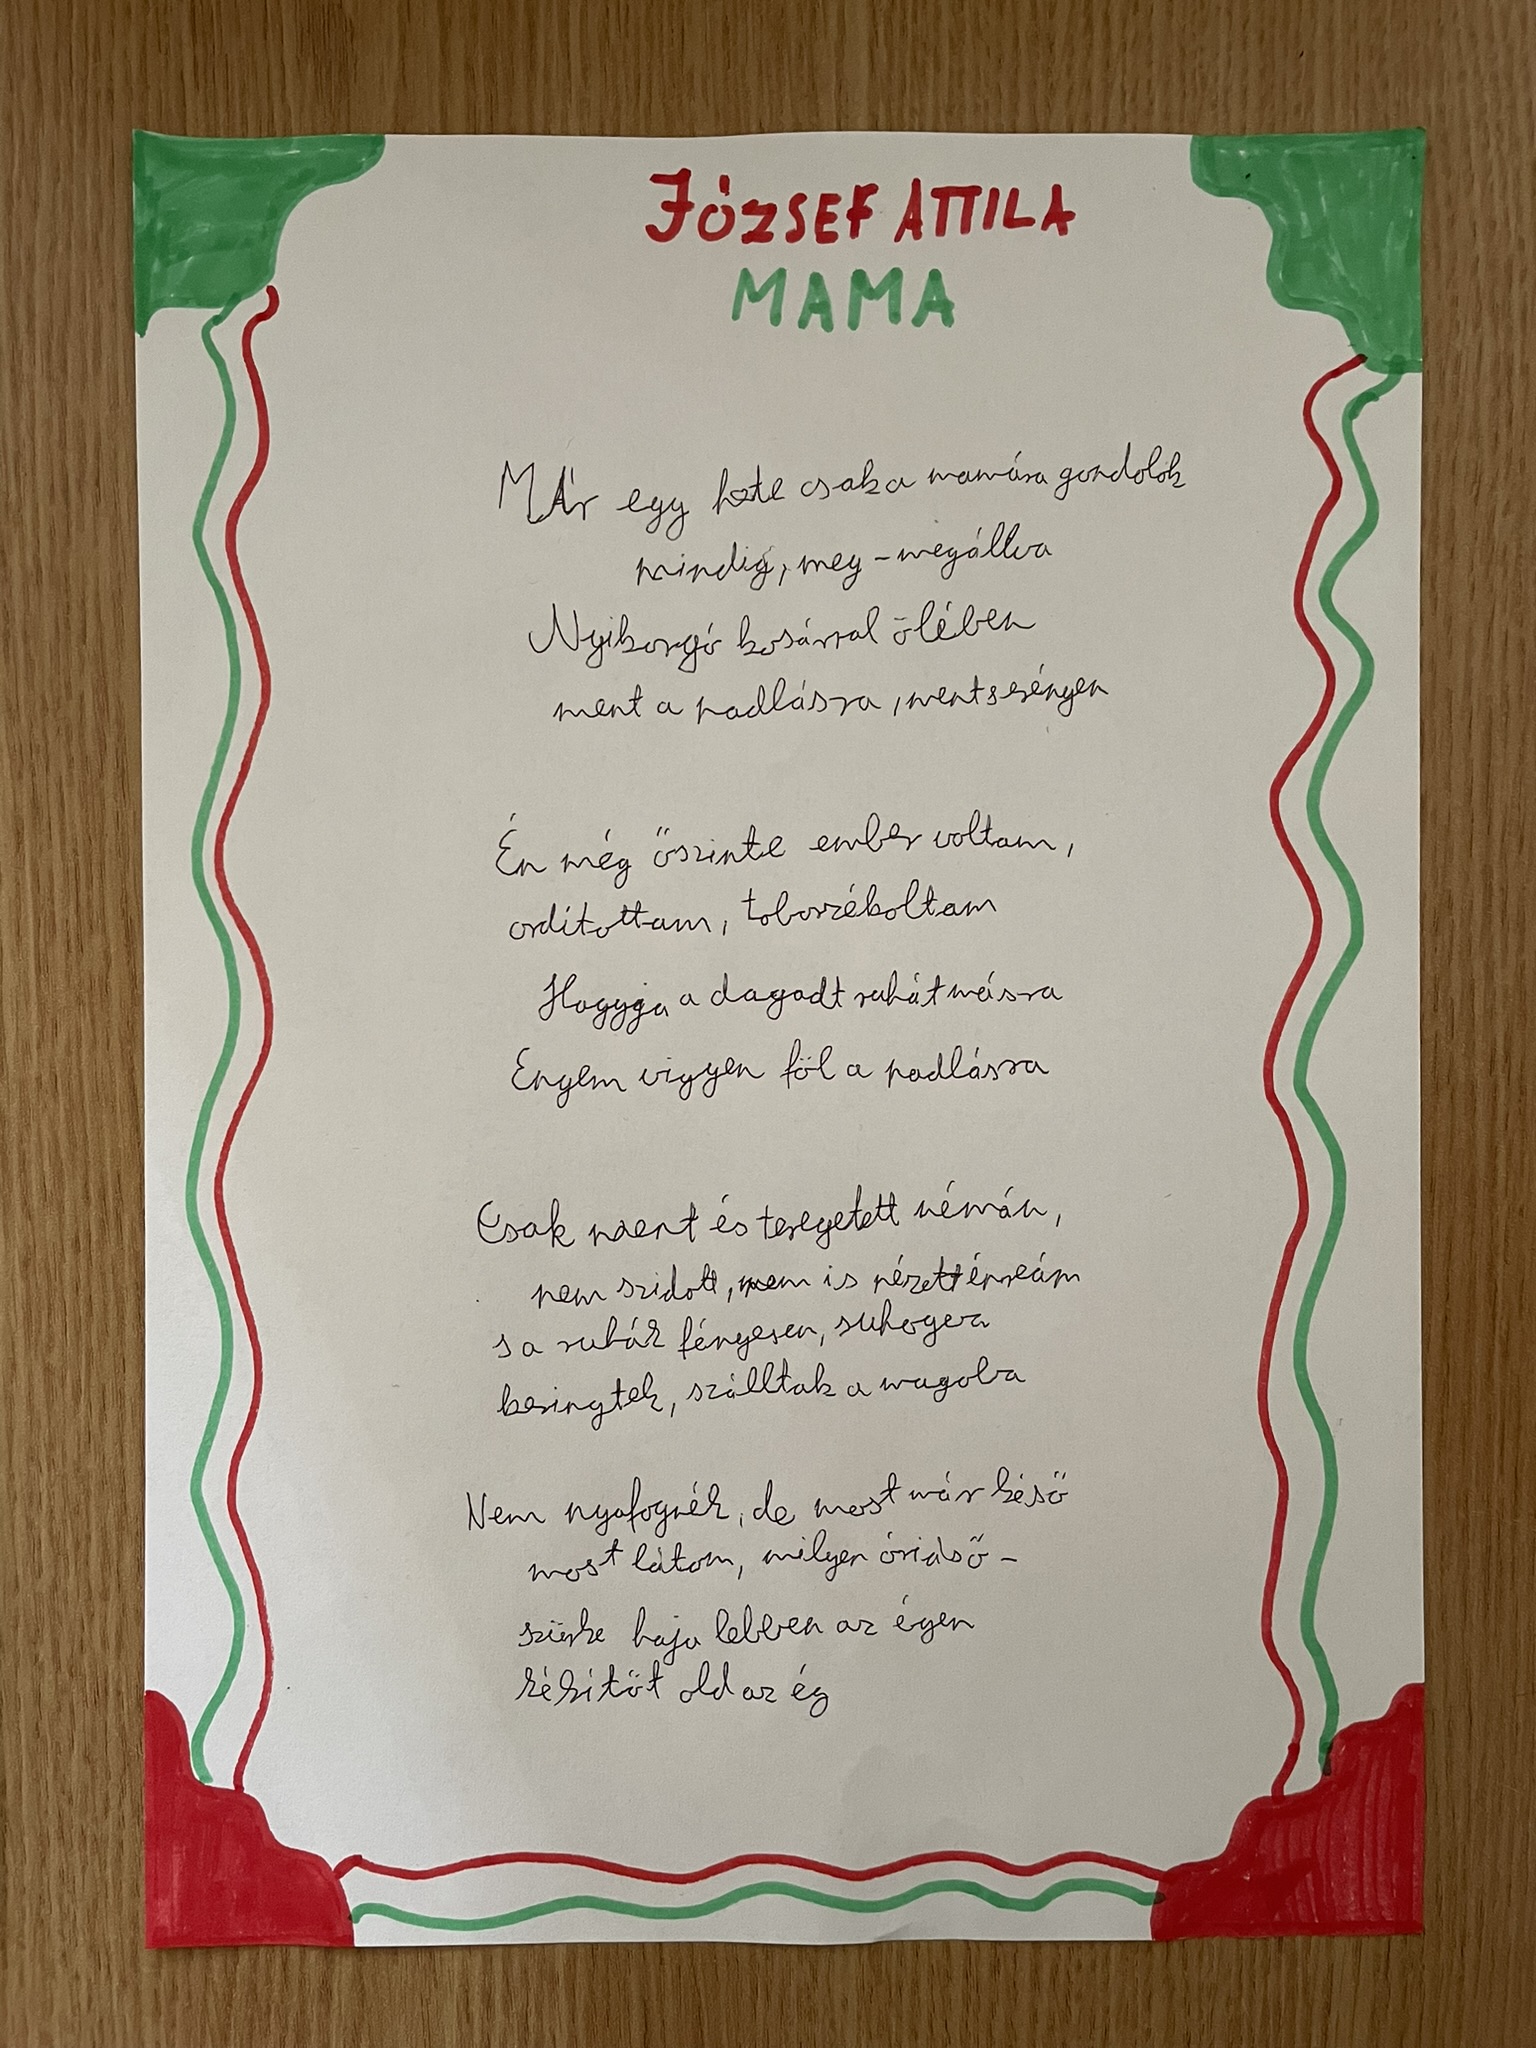 JÓZSEF ATTILA
MAMA
MÁr egy hete csak a mamára gondolok
mindig, meg-megállva
Nyikorgó kosárral ölében
ment a padlásra, ment serényen
Én még őszinte ember voltam,
ordítottam, toborzékoltam
Hagyja a dagadt ruhát másra
Engem vigyen föl a padlásra
Csak ment és teregetett némán,
nem szidott, nem is nézett énreám
s a ruhák fényesen, suhogva
keringtek, szálltak a magolba
Nem nyafognék, de most már késő
most látom, milyen óriáső -
szürke haja lebben az égen
kékítőt old az ég